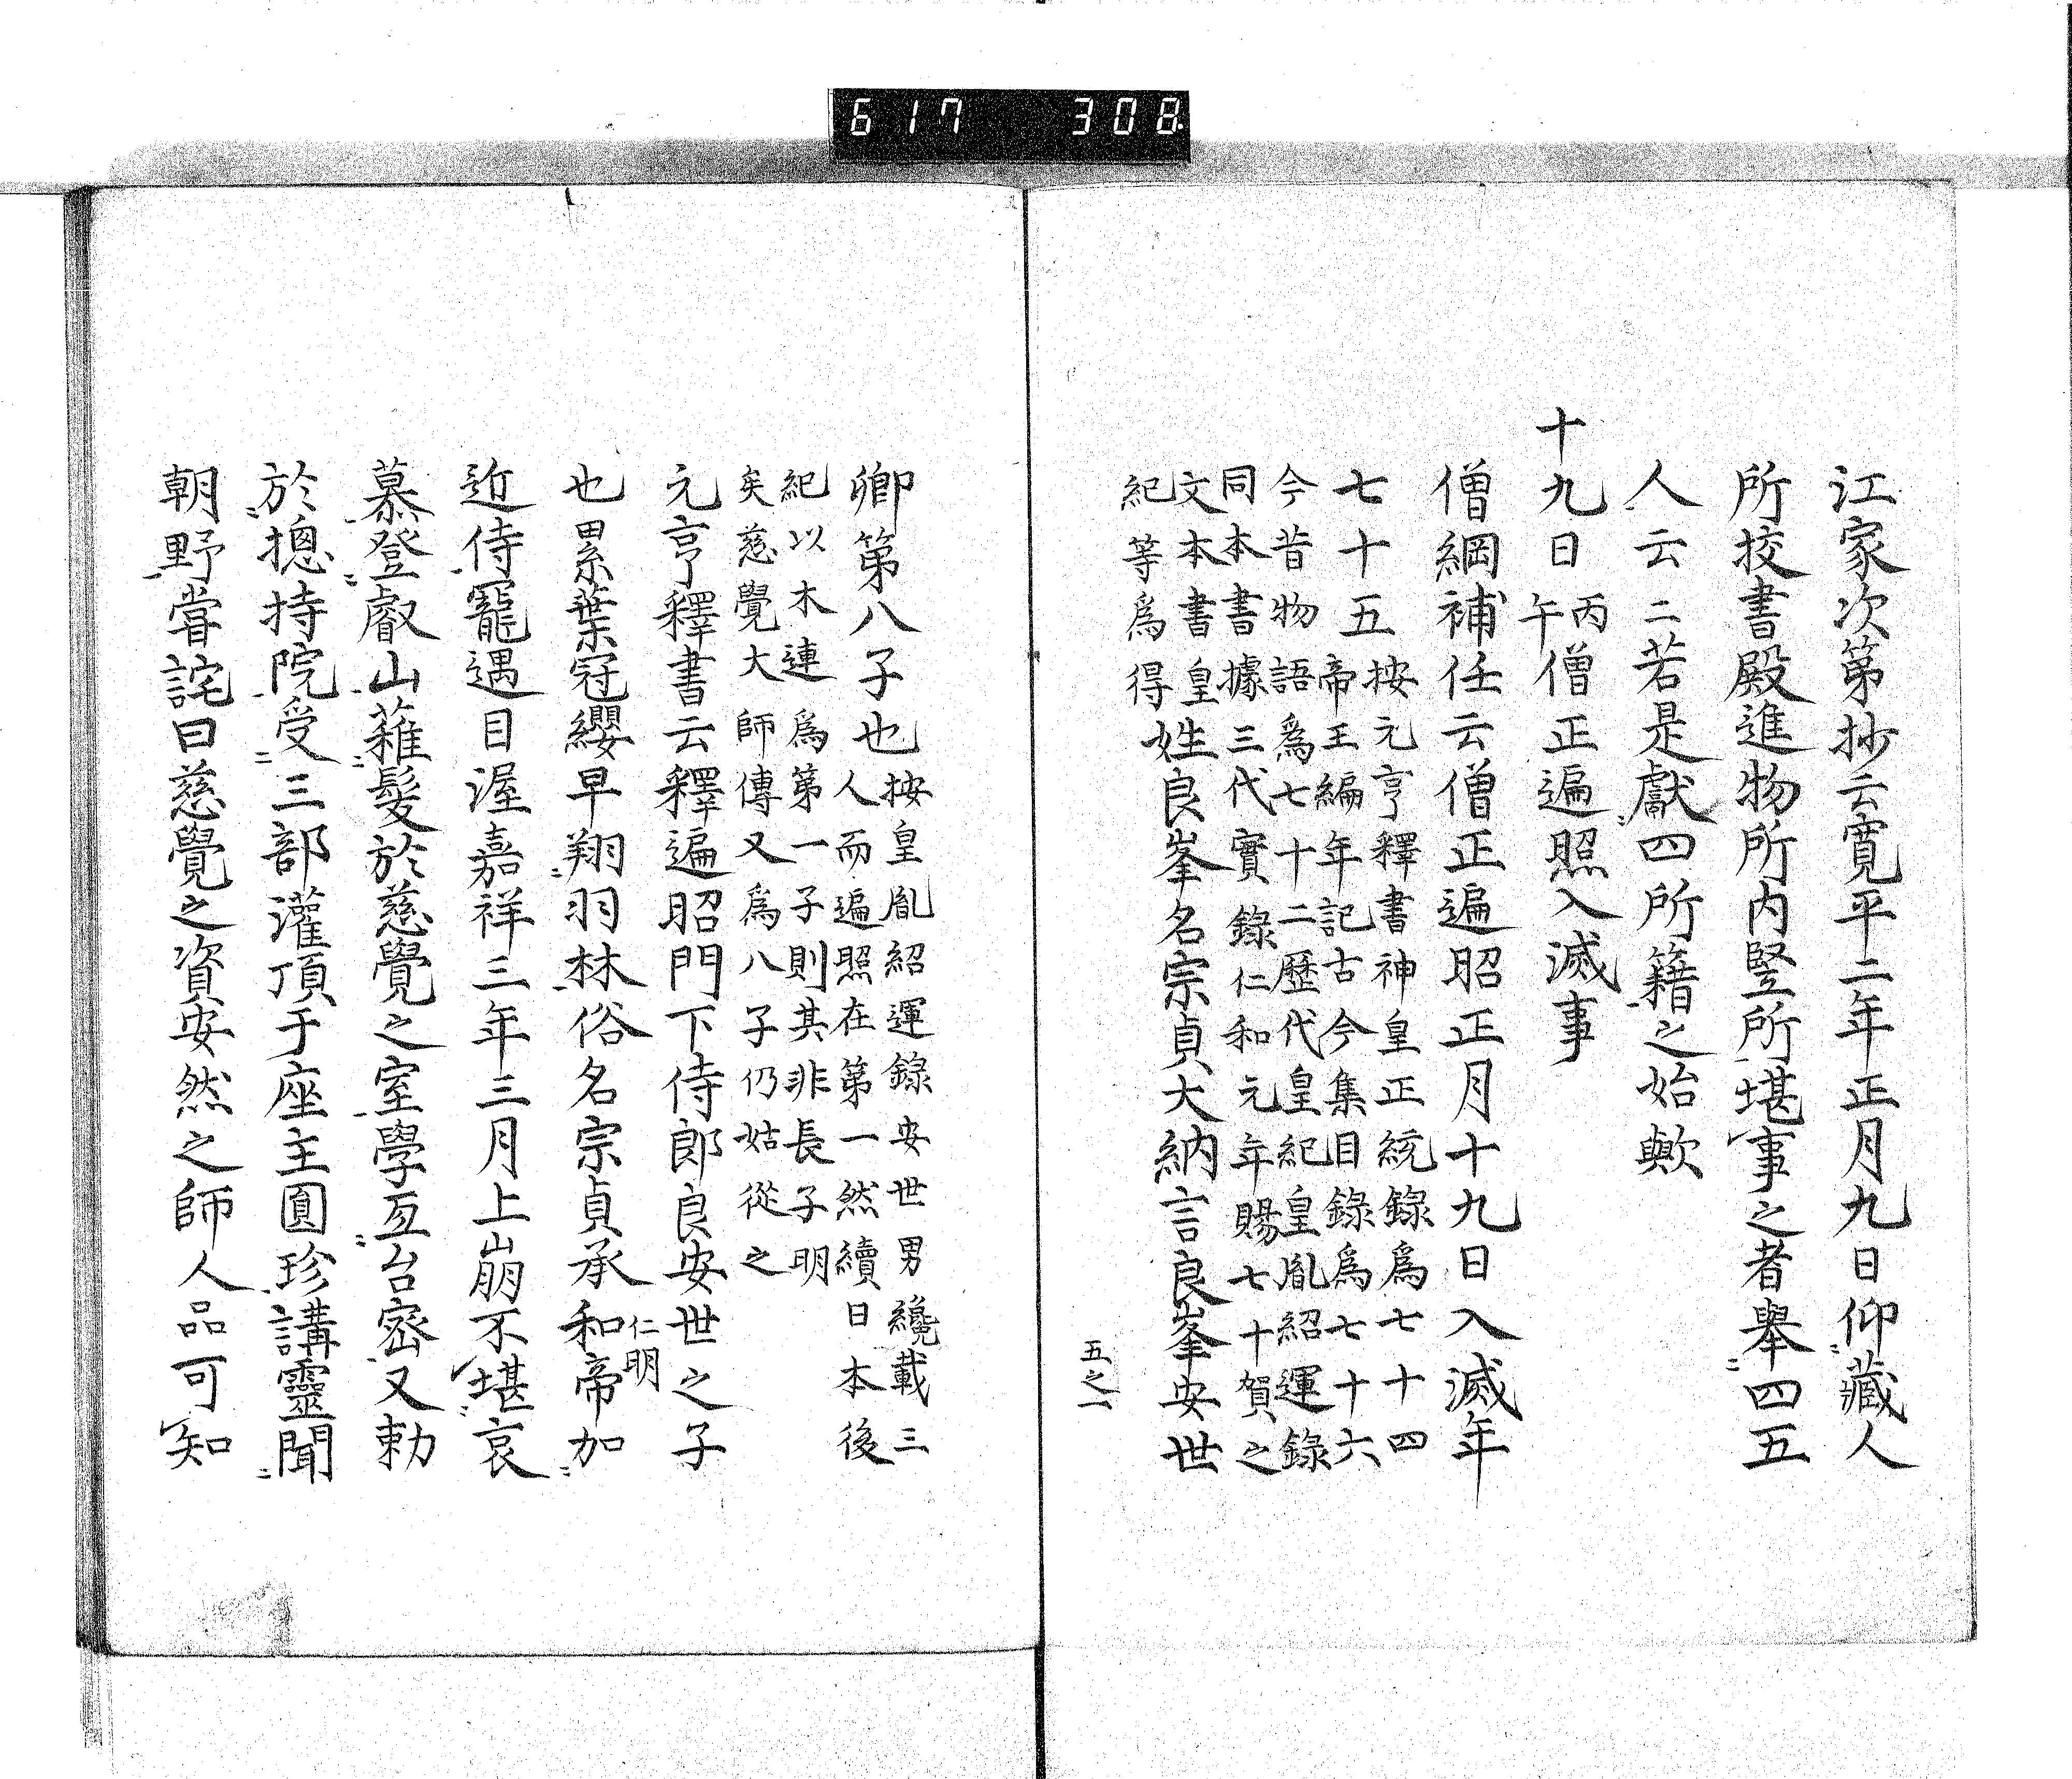 617 308
江家次第抄云寛平二年正月九日仰藏人
所挍書殿進物所内竪所堪事之者舉四五
人云〻若是獻四所籍之始歟
十九日丙午僧正遍照入滅事
僧綱補任云僧正遍昭正月十九日入滅年
七十五按元亨釋書神皇正統錄爲七十四
帝王編年記古今集目錄爲七十六
今昔物語爲七十二歷代皇紀皇胤紹運錄
同本書據三代實錄仁和元年賜七十賀之
文本書皇
紀等爲得姓良峯名宗貞大納言良峯安世
五之一
卿第八子也按皇胤紹運錄安世男纔載三
人而遍照在第一然續日本後
紀以木連爲第一子則其非長子明
矣慈覺大師傳又爲八子仍姑從之
元亨釋書云釋遍昭門下侍郎良安世之子
也累葉冠纓早翔羽林俗名宗貞承和帝加
仁明
近侍寵遇目渥嘉祥三年三月上崩不堪哀
慕登叡山薙髮於慈覺之室學亙台密又勅
於揔持院受三部灌頂于座主圓珍講靈聞
朝野甞詫曰慈覺之資安然之師人品可知